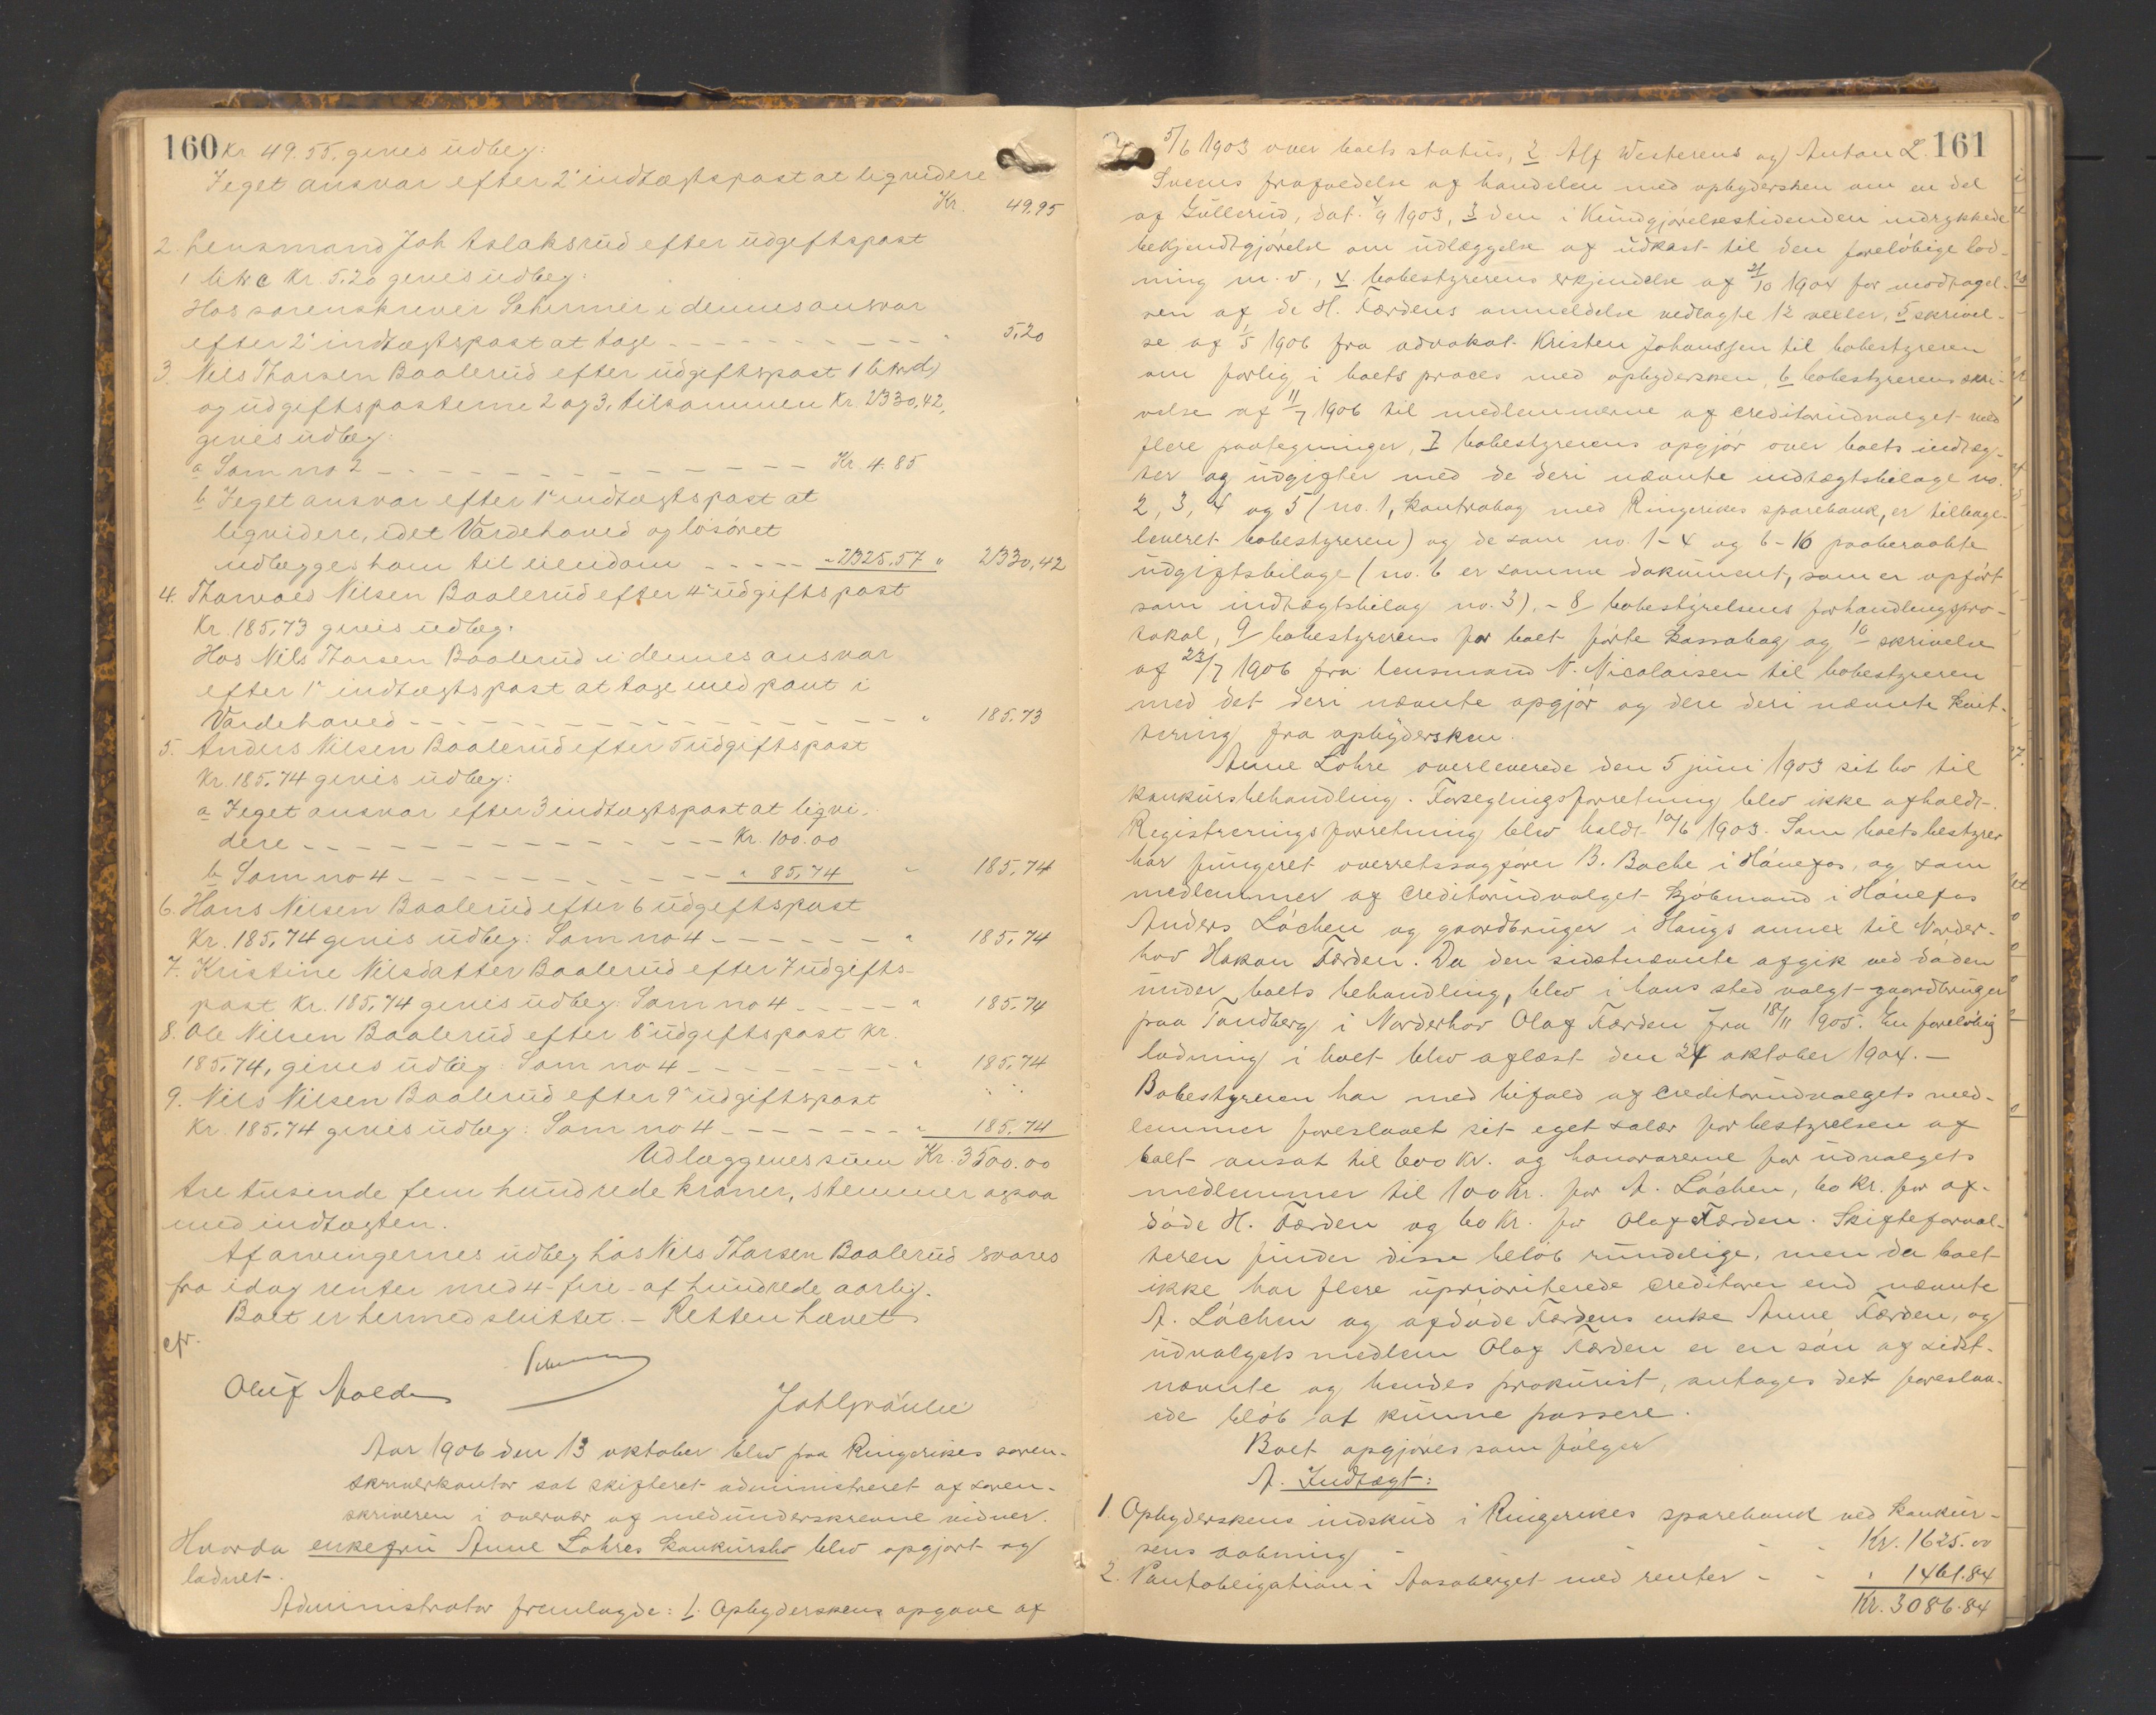 160
Kr 49.55. gives udlæg:
I eget ansvar efter 2' indtægtspost at liqvidere
Kr. 49.95
2. Lensmand Joh Aslaksrud efter udgiftspost
1 litr c Kr. 5.20 gives udlæg:
Hos sorenskriver Schirmer i dennes ansvar
efter 2' indtægtspost at tage " 5,20
3. Nils Thorsen Baalerud efter udgiftspost 1 litr d,
og udgiftsposterne 2 og 3, tilsammen Kr. 2330,42,
gives udlæg:
a Som no 2 Kr. 4.85
b I eget ansvar efter 1' indtægtspost at
liqvidere, idet Vardehaved og løsøret
udlægges ham til eiendom " 2325.57 " 2330,42
4. Thorvald Nilsen Baalerud efter 4' udgiftspost
Kr. 185,73 gives udlæg.
Hos Nils Thorsen Baalerud i dennes ansvar
efter 1' indtægtspost at tage med pant i
Vardehaved " 185.73
5. Anders Nilsen Baalerud efter 5 udgiftspost
Kr. 185.74 gives udlæg:
a I eget ansvar efter 3 indtægtspost at liqvi-
dere Kr. 100.00
b Som no 4 " 85,74 " 185,74
6. Hans Nilsen Baalerud efter 6 udgiftspost
Kr. 185,74 gives udlæg: Som no 4 " 185,74
7. Kristine Nilsdatter Baalerud efter 7 udgifts-
post Kr. 185,74 gives udlæg: Som no 4 " 185.74
8. Ole Nilsen Baalerud efter 8' udgiftspost Kr.
185,74, gives udlæg: Som no 4 " 185,74
9. Nils Nilsen Baalerud efter 9' udgiftspost
Kr. 185.74 gives udlæg: Som no 4 " 185,74
Udlæggenes sum Kr. 3500.00
tre tusende fem hundrede kroner, stemmer ogsaa
med indtægten.
Af arvingernes udlæg hos Nils Thorsen Baalerud svares
fra idag renter med 4 - fire - af hundrede aarlig.
Boet er hermed sluttet. - Retten hævet
cfr.
Oluf Molde
Aar 1906 den 13 oktober blev paa Ringerikes soren-
skriverkontor sat skifteret administreret af soren-
skriveren i overvær af medunderskrevne vidner.
Hvorda enkefru Anne Lohres konkursbo blev opgjort og
lodnet.
Administrator fremlagde: 1. Opbyderskens opgave af
161
5/6 1903 over boets status, 2 Alf Westerens og Anton L.
Svens frafaldelse af handelen med opbydersken om en del
af Gullerud, dat. 4/9 1903, 3 den i Kundgjørelsestidenden indrykkede
bekjendtgjørelse om udlæggelse af udkast til den foreløbige lod-
ning m. v., 4 bobestyrerens erkjendelse af 21/10 1904 for modtagel-
sen af de H. Færdens anmeldelse vedlagte 12 vexler, 5 skrivel-
se af 1/5 1906 fra advokat Kristen Johanssen til bobestyreren
om forlig i boets proces med opbydersken, 6 bobestyrerens skri-
velse af 11/7 1906 til medlemmerne af creditorudvalget med
flere paategninger, 7 bobestyrerens opgjør over boets indtæg-
ter og udgifter med de deri nævnte indtægtsbilage no.
2, 3, 4 og 5 (no. 1, kontrabog med Ringerikes sparebank, er tilbage-
leveret bobestyreren) og de som no. 1-4 og 6-16 paaberaabte
udgiftsbilage (no. 6 er samme dokument, som er opført
som indtægtsbilag no. 3). - 8 bobestyrelsens forhandlingspro-
tokol, 9 bobestyrerens for boet førte kassabog og 10 skrivelse
af 23/7 1906 fra lensmand N. Nicolaisen til bobestyreren
med det deri nævnte opgjør og den deri nævnte kvit-
tering fra opbydersken.
Anne Lohre overleverede den 5 juni 1903 sit bo til
konkursbehandling. Forseglingsforretning blev ikke afholdt.
Registreringsforretning blev holdt 10/6 1903. Som boets bestyrer
har fungeret overretssagfører B. Bache i Hønefos, og som
medlemmer af creditorudvalget kjøbmand i Hønefos
Anders Løchen og gaardbruger i Haugs annex til Norder-
hov Hakon Færden. Da den sidstnævnte afgik ved døden
under boets behandling, blev i hans sted valgt gaardbruger
paa Tandberg i Norderhov Olaf Færden fra 18/11 1905. En foreløbig
lodning i boet blev aflæst den 24 oktober 1904. -
Bobestyreren har med bifald af creditorudvalgets med-
lemmer foreslaaet sit eget salær for bestyrelsen af
boet ansat til 600 kr. og honorarerne for udvalgets
medlemmer til 100 kr. for A. Løchen, 60 kr. for af-
døde H. Færden og 60 kr. for Olaf Færden. Skifteforval-
teren finder disse beløb rundelige, men da boet
ikke har flere uprioriterede creditorer end nævnte
A. Løchen og afdøde Færdens enke Anne Færden, og
udvalgets medlem Olaf Færden er en søn af sidst-
nævnte og hendes prokurist, antages det foreslaa-
ede beløb at kunne passere.
Boet opgjøres som følger
A. Indtægt:
1. Opbyderskens indskud i Ringerikes sparebank ved konkur-
sens aabning - - - - Kr. 1625.00
2. Pantobligation i Aasaberget med renter - - " 1461.84
Kr. 3086.84